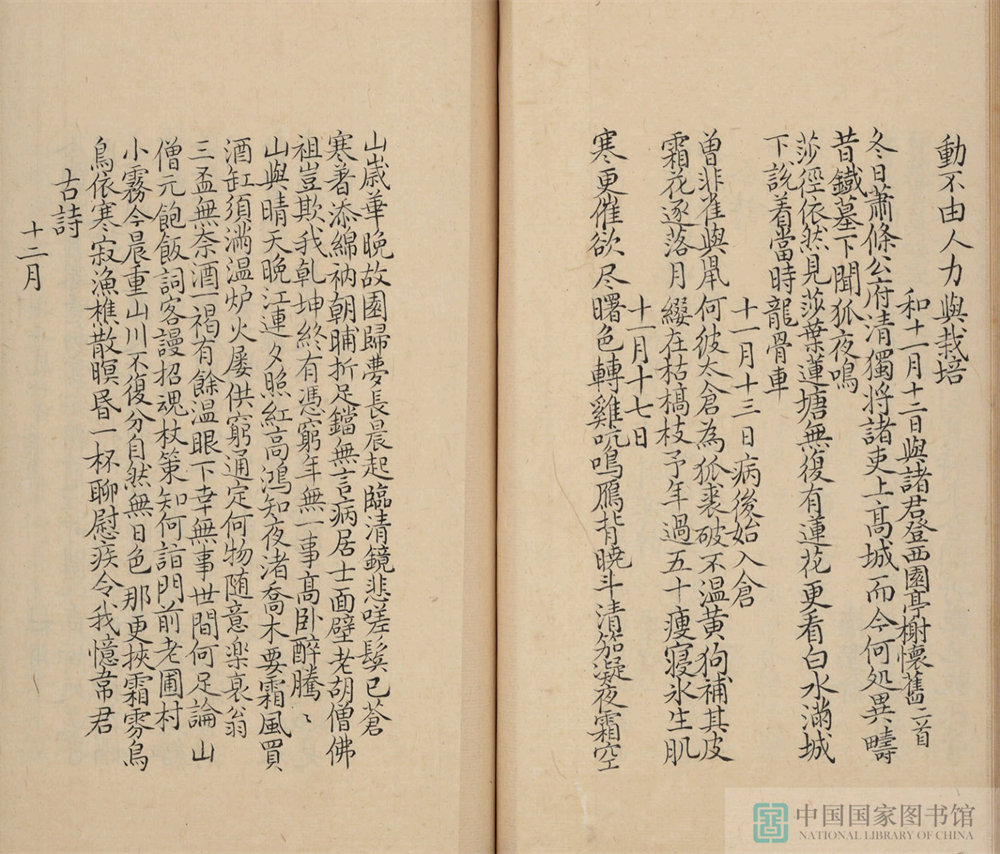 動不由人力與栽培
和十一月十二日與諸君登西園亭榭懷舊二首
冬日蕭條公府清獨將諸吏上高城而今何処異疇
昔鐵墓下聞狐夜鳴
莎徑依然見莎葉蓮塘無復有蓮花更看白水滿城
下說着當時龍骨車
十一月十三日病後始入倉
曾非雀與鼡何彼太倉為狐裘破不温黄狗補其皮
霜花逐落月綴在枯槁枝予年過五十瘦寝氷生肌
十一月十七日
寒更催欲尽曙色轉雞吭鳴鴈背暁斗清笳凝夜霜空
山歲華晚故園歸夢長晨起臨清鏡悲嗟髮已蒼
寒著添綿衲朝晡折足鐺無言病居士面壁老胡僧佛
祖豈欺我乹坤終有憑窮年無一事高卧醉騰〻
山與晴天晚江連夕照紅高鴻知夜渚喬木要霜風買
酒缸須滿温炉火屡供窮通定何物随意楽衰翁
三盃無奈酒一褐有餘温眼下幸無事世間何足論山
僧元飽飯詞客謾招魂杖策知何詣門前老圃村
小霧今晨重山川不復分自然無日色那更挾霜雰烏
鳥依寒寂漁樵散暝昏一杯聊慰疾令我憶常君
古詩
十二月
中国国家图书馆
NATIONAL LIBRARY OF CHINA